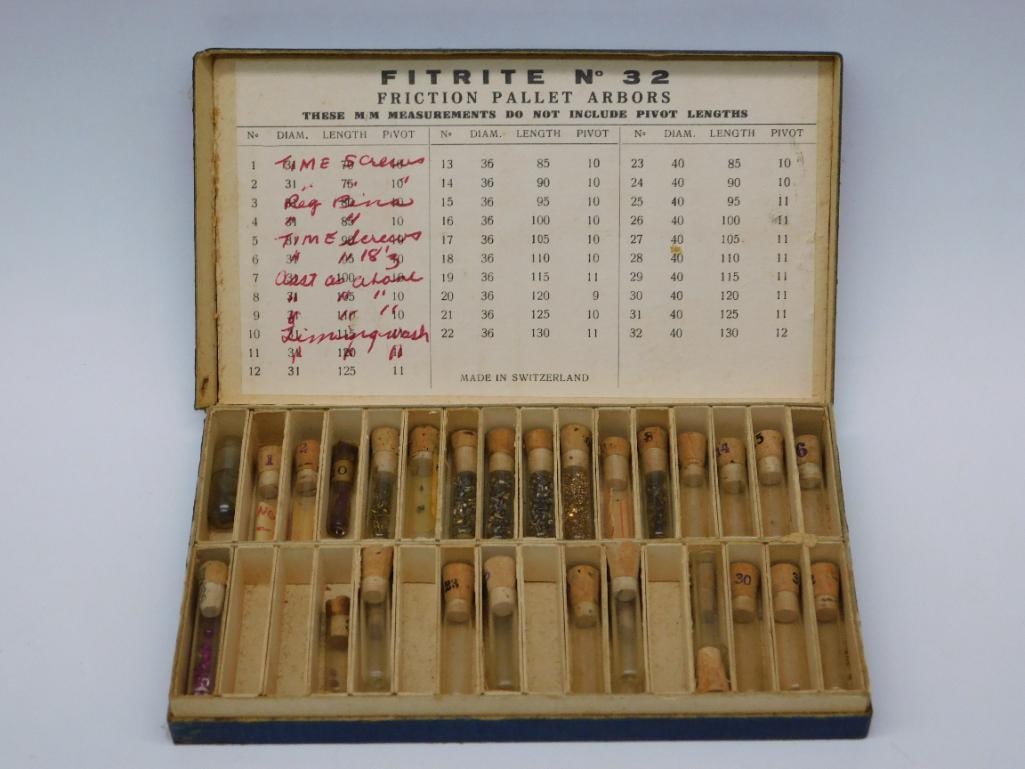 FITRITE Nº 32
FRICTION PALLET ARBORS
THESE M/M MEASUREMENTS DO NOT INCLUDE PIVOT LENGTHS
Nº DIAM. LENGTH PIVOT Nº DIAM. LENGTH PIVOT Nº DIAM. LENGTH PIVOT
1 TIME Screws 13 36 85 10 23 40 85 10
2 31 75 10 " " " 14 36 90 10 24 40 90 10
3 Reg Pins 15 36 95 10 25 40 95 11
4 31 85 10 " " 16 36 100 10 26 40 100 11
5 TIME Screws 17 36 105 10 27 40 105 11
6 " " 18's 18 36 110 10 28 40 110 11
7 31 100 10 Asst as above 19 36 115 11 29 40 115 11
8 31 105 10 " " " 20 36 120 9 30 40 120 11
9 31 110 10 " " 21 36 125 10 31 40 125 11
10 31 115 Timing wash 22 36 130 11 32 40 130 12
11 31 120 11 " " "
12 31 125 11
MADE IN SWITZERLAND
1 2 0 8 14 5 6
NO
23 30 3